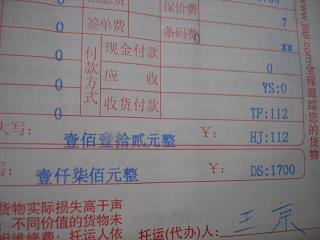 0 信息费
保价费 7
0 签单费
条码费 0
现金付款 xx
0 付款方式
应 收 0
YS:0
0 收货付款
TF:112
大写: 壹佰壹拾贰元整 ¥: HJ:112
写: 壹仟柒佰元整 ¥: DS:1700
货物实际损失高于声
不同价值的货物未
托运人依 托运(代办)人: 王京
www.jiaji.com全程跟踪您的货物